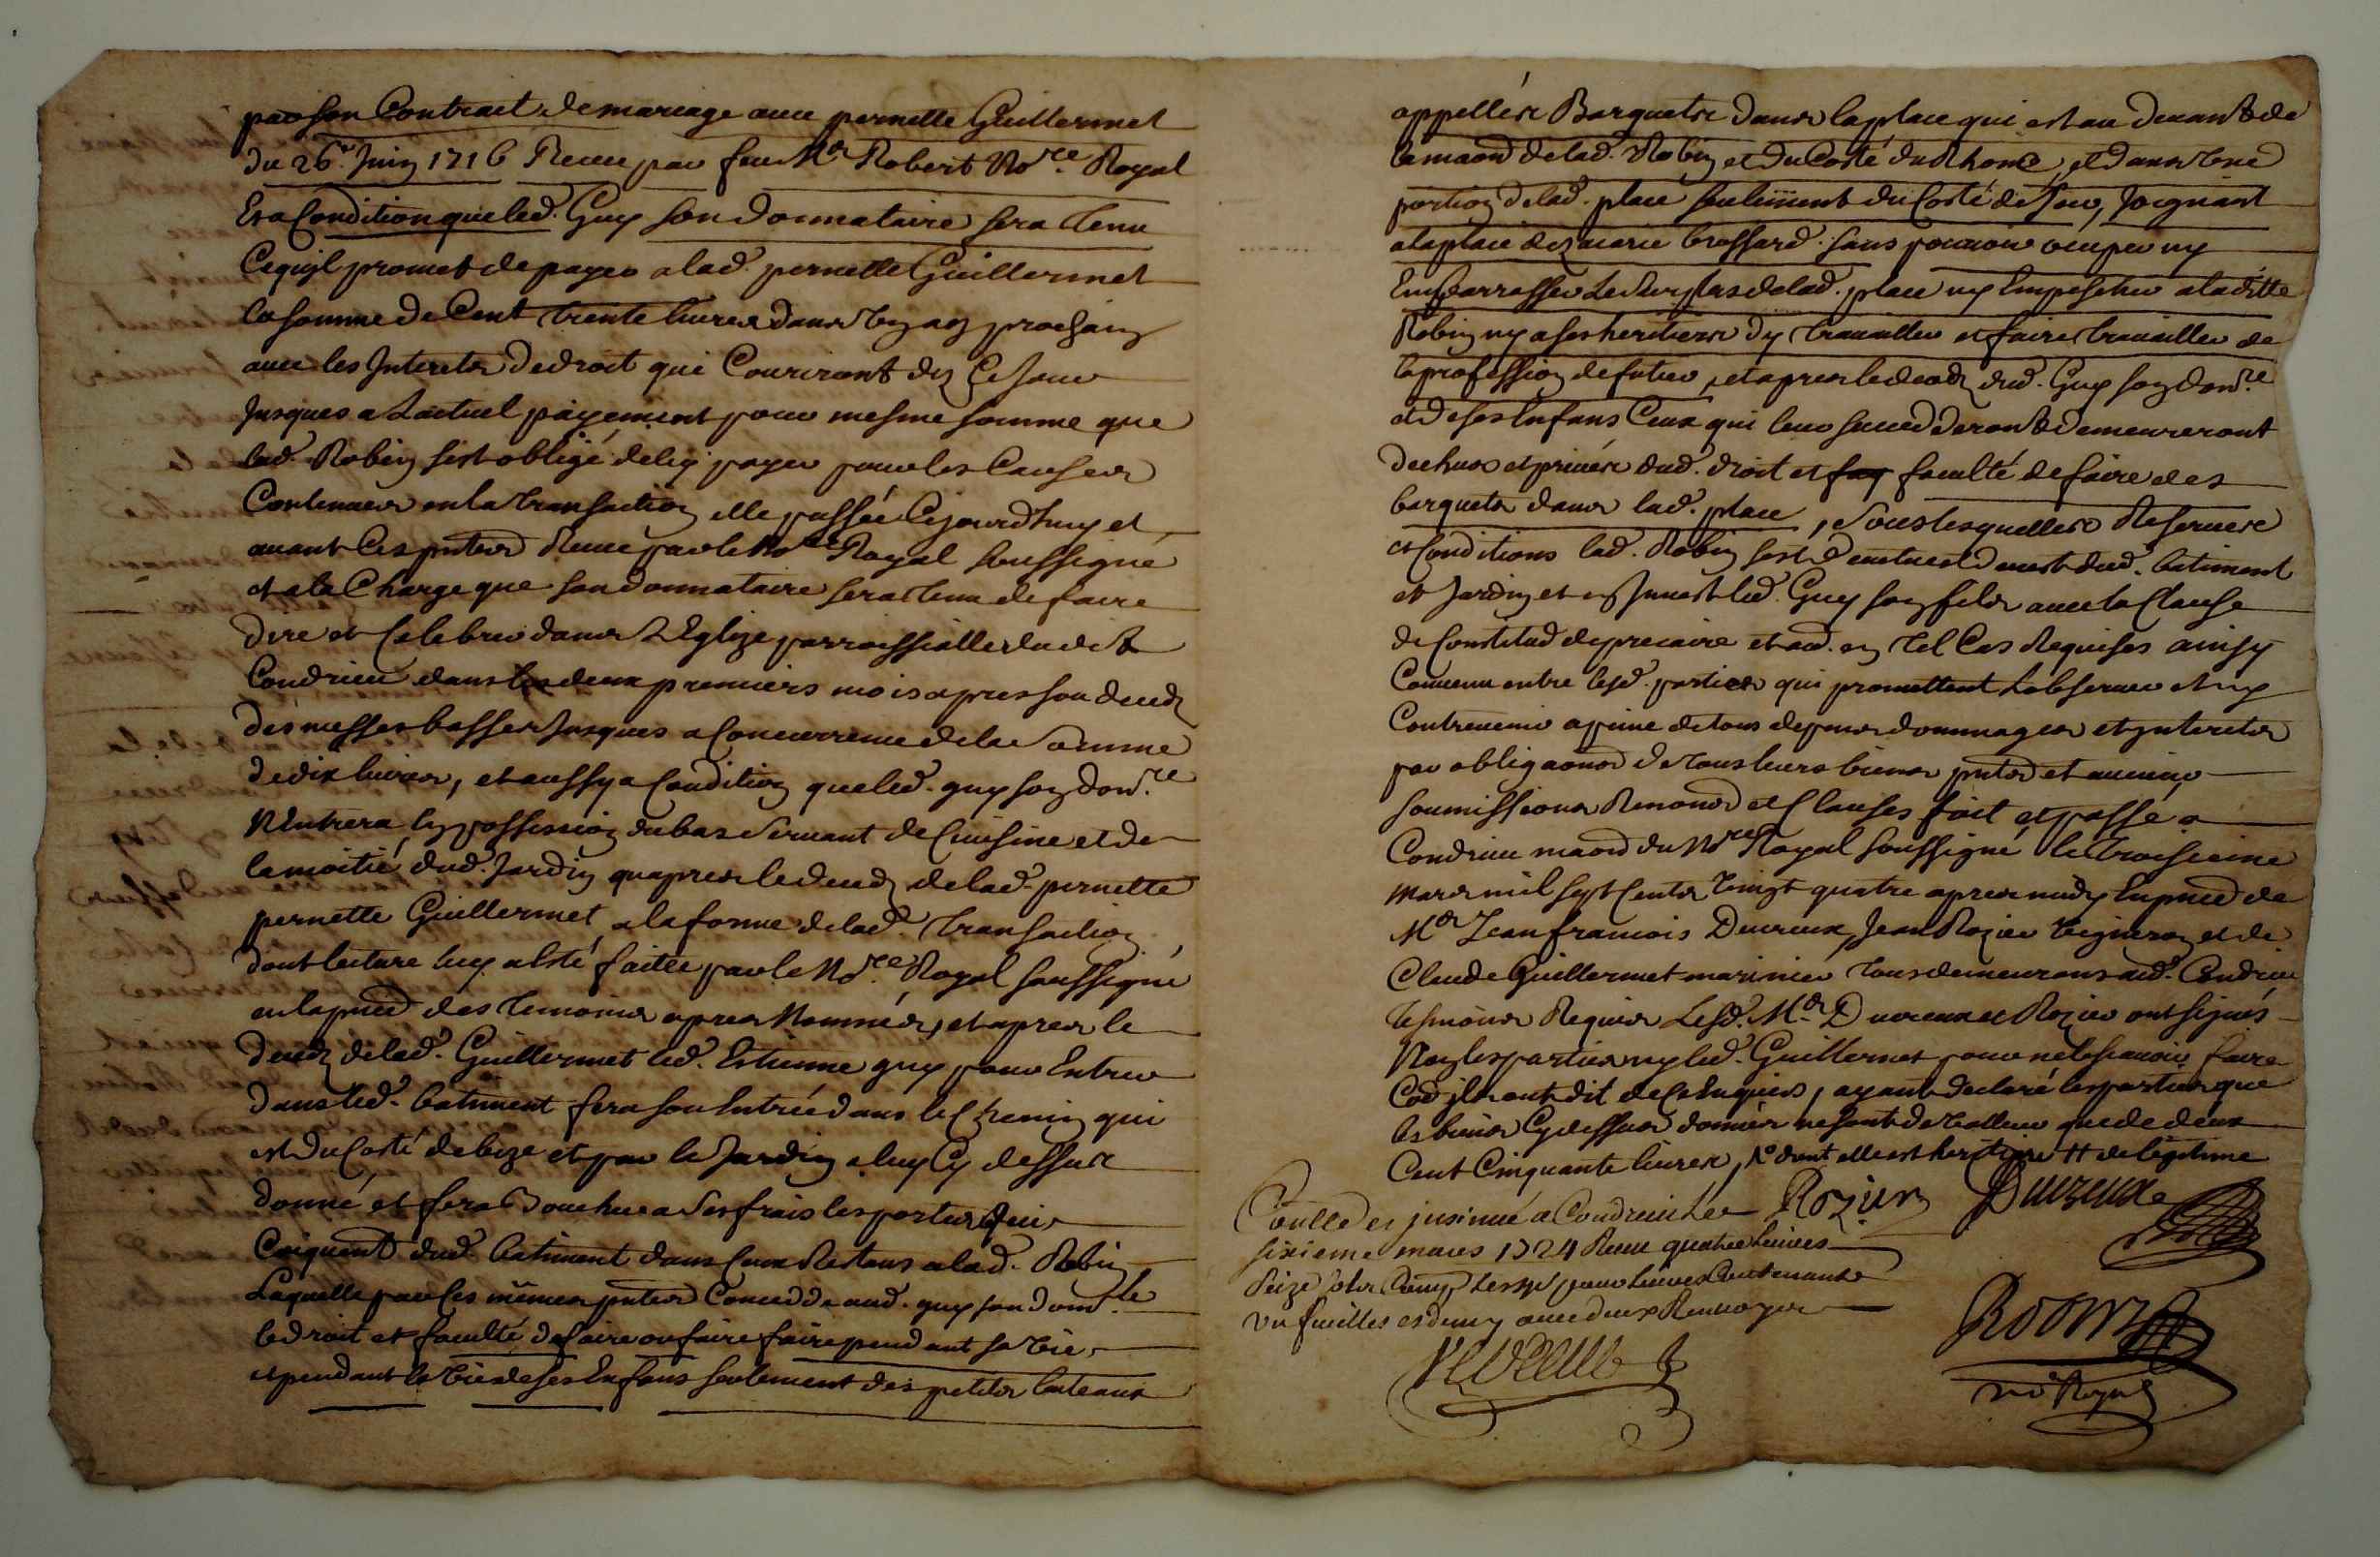 par son Contract de mariage avec pernette Guillermet
du 26e Juin 1716 Receu par feu Me Robert Nore Royal
Et a Condition que led. Guy son donnataire sera tenu
Ce quil promet de payer a lad. pernette Guillermet
la somme de Cent trente livres dans un an prochain
avec les Interets de droit qui Couriront dez Ce Jour
Jusques a Lactuel payement pour mesme somme que
lad. Robin sest obligé de luy payer pour les Causes
Contenues en la transaction elle passée Cejourdhuy et
avant Ces pntes Receue par le Nore Royal soussigné
et a la Charge que son donnataire sera tenu de faire
dire et Celebrer dans LEglize parroissialle dudit
Condrieu dans les deux premiers mois apres son deceds
des messes basses Jusques a Concurrence de la somme
de dix livres, et aussy a Condition que led. guy son donre
N'Entrera en possession du bas servant de Cuisine et de
la moitié dud. Jardin quapres le deceds de lad. pernette
pernette Guillermet a la forme de lad. transaction
dont lecture luy a esté faitte par le Nore Royal soussigné
en la pnce des temoins apres Nommés, et apres le
deceds de lad. Guillermet led. Estienne guy pour Entrer
dans led. batiment fera son Entrée dans le Chemin qui
est du Costé de bize et par le Jardin a luy Cy dessus
donné et fera Boucher a ses frais les portes qui
dud. batiment dans Ceux Restans a lad. Robin
Laquelle par Ces mesmes pntes Concedde aud. guy son donre
le droit et faculté de faire ou faire faire pendant sa vie
et pendant la vie de ses Enfans seulement des petits bateaux
appellés Barquets dans la place qui est au devant de
la maon de lad. Robin et du Costé du Rhone, et dans une
portion de lad. place seulement du Costé de Joignant
a la place de marie brossard. sans pouvoir occuper ny
Embarrasser Le surplus de lad. place ny Empescher a laditte
Robin ny a ses heritiers dy travailler et faire travailler de
la profession de et apres le deceds dud. Guy son donre
et de ses Enfans Ceux qui leur succedderont demeureront
dechus et privés dud. droit et faculté de faire des
barquets dans lad. place, sous lesquelles Reserves
et Conditions lad. Robin sest devestue dud. batiment
et Jardin et en Invest led. Guy son fils avec la Clause
de Constitud de precaire et aue. en tel Cas Requises ainsy
Convenu entre lesd. parties qui promettent Lobserver et ny
Contrevenir a peine de tous depens dommages et interets
par obligaons de tous leurs biens pnts et avenir
soumissions Renons et Clauses fait et passé a
Condrieu maon du Nore Royal soussigné le troisieme
mars mil sept Cents vingt quatre apres midy En pnce de
Me Jean francois Duvreux, Jean Rozier vigneron et de
Claude Guillermet marinier tous demeurans aud. Condrieu
tesmoins Requis Lesd. Me Duvreux et Rozier ont signés
Non les parties ny led. Guillermet pour ne le scavoir faire
Co ils ont dit de Ce Enquis, ayant declaré les parties que
les biens Cy dessus donnés ne sont de valleur que de deux
Cent Cinquante livres, dont elle est heritiere de legitime
Con.lle et insinué a Condrieu Le Rozier Duvreux
sixieme mars 1724 Receu quatre livres
seize sols
un feuilles et demy avec deux Renvoyes
Robert
no Royal